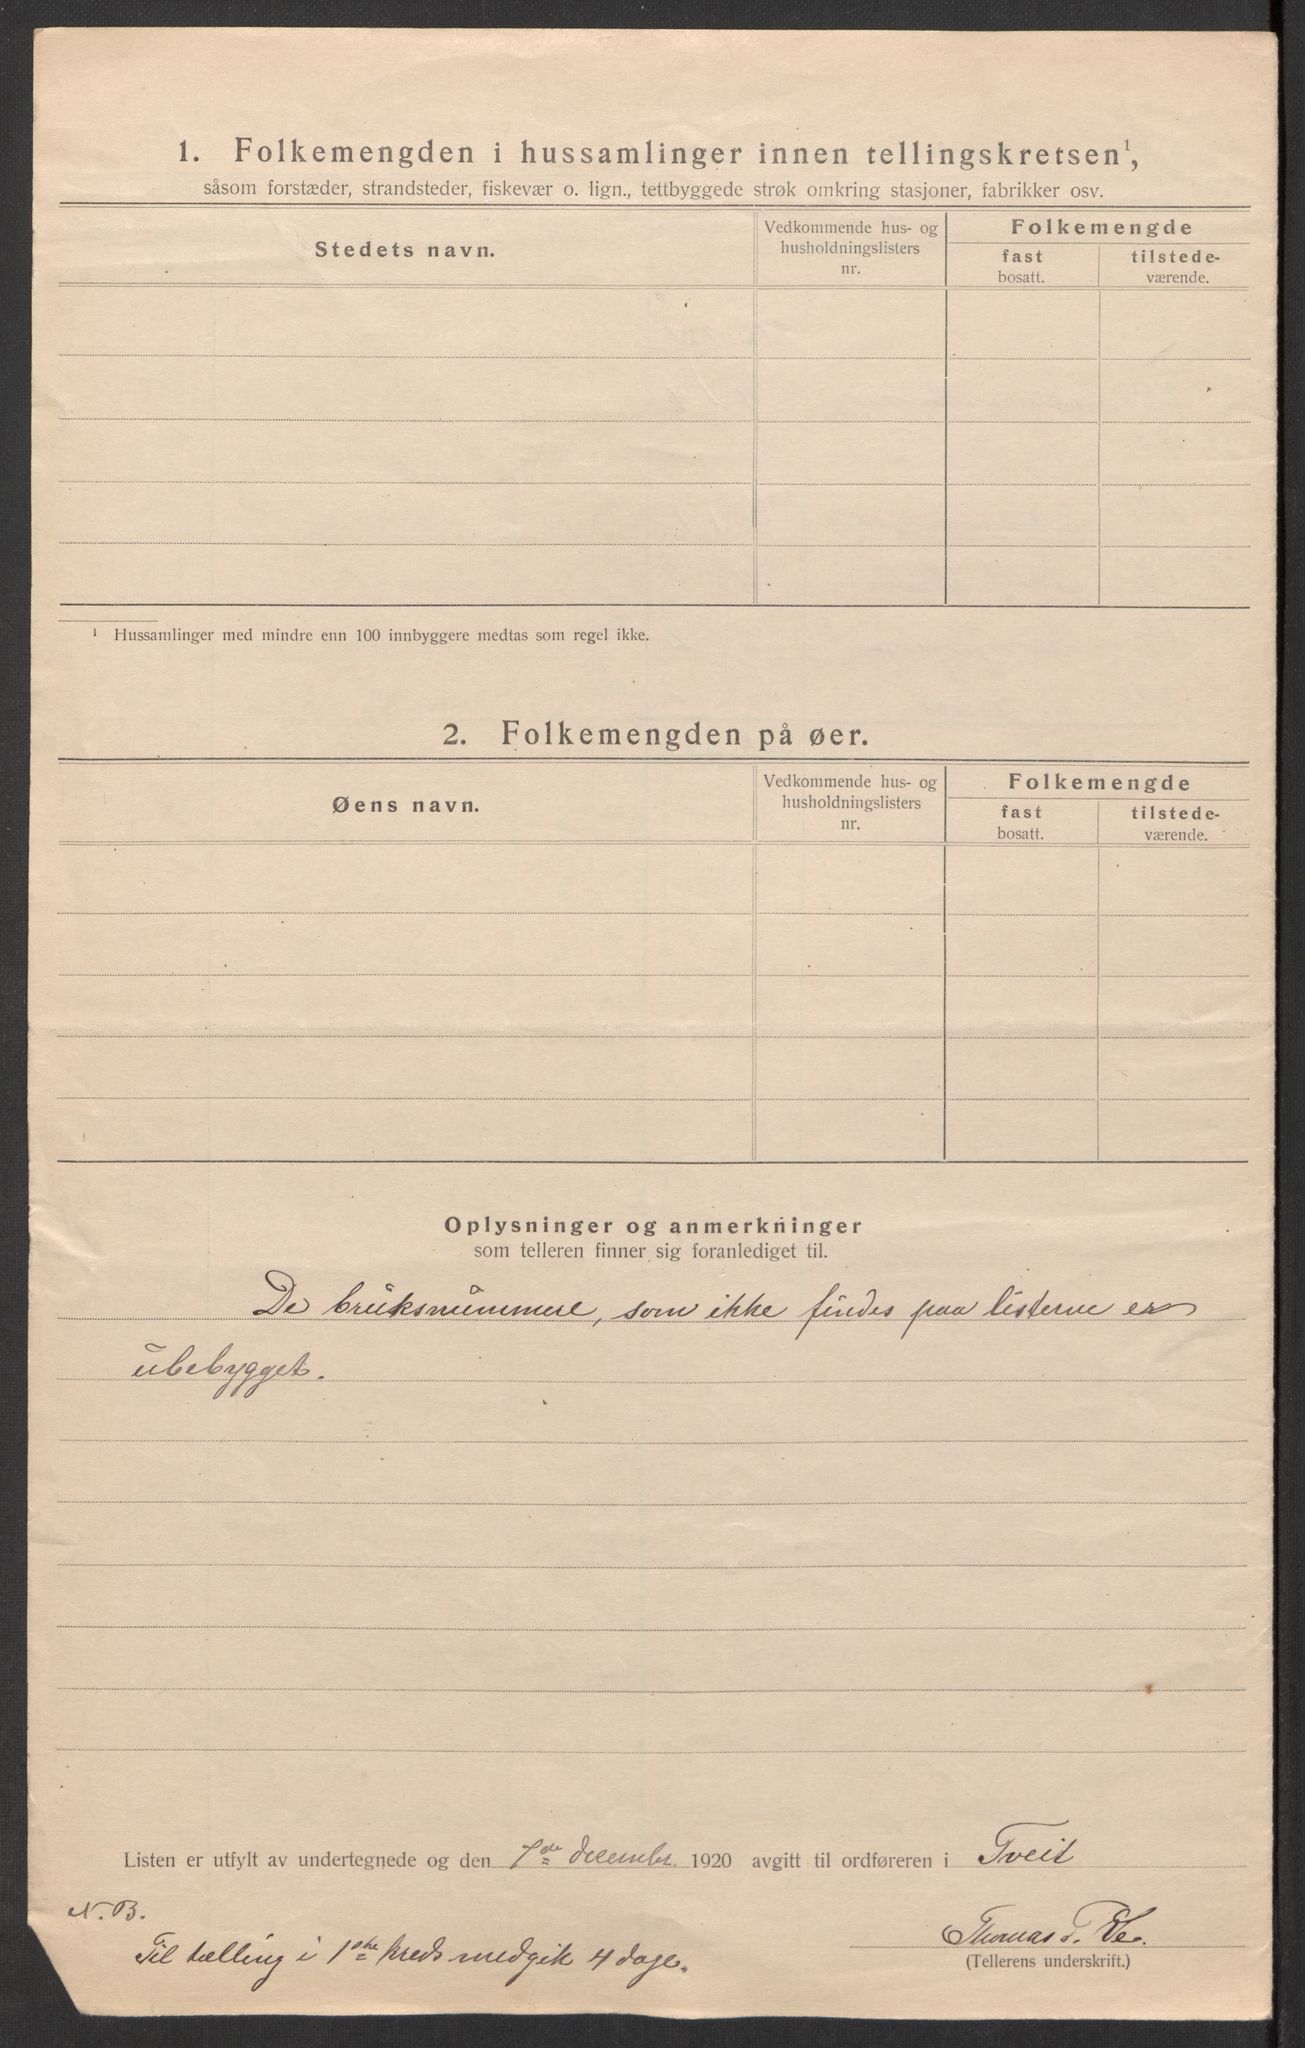 1. Folkemengden i hussamlinger innen tellingskretsen¹,
såsom forstæder, strandsteder, fiskevær o. lign., tettbyggede strøk omkring stasjoner, fabrikker osv.
Stedets navn.
Vedkommende hus- og
husholdningslisters
nr.
Folkemengde
fast
bosatt.
tilstede-
værende.
¹ Hussamlinger med mindre enn 100 innbyggere medtas som regel ikke.
2. Folkemengden på øer.
Øens navn.
Vedkommende hus- og
husholdningslisters
nr.
Folkemengde
fast
bosatt.
tilstede-
værende.
Oplysninger og anmerkninger
som telleren finner sig foranlediget til.
De bruksnummere, som ikke findes paa listerne er
ubebygget.
Listen er utfylt av undertegnede og den 7de december 1920 avgitt til ordføreren i Tveit
N. B.
Til tælling i 1ste kreds medgik 4 dage.
Thomas T.
(Tellerens underskrift.)